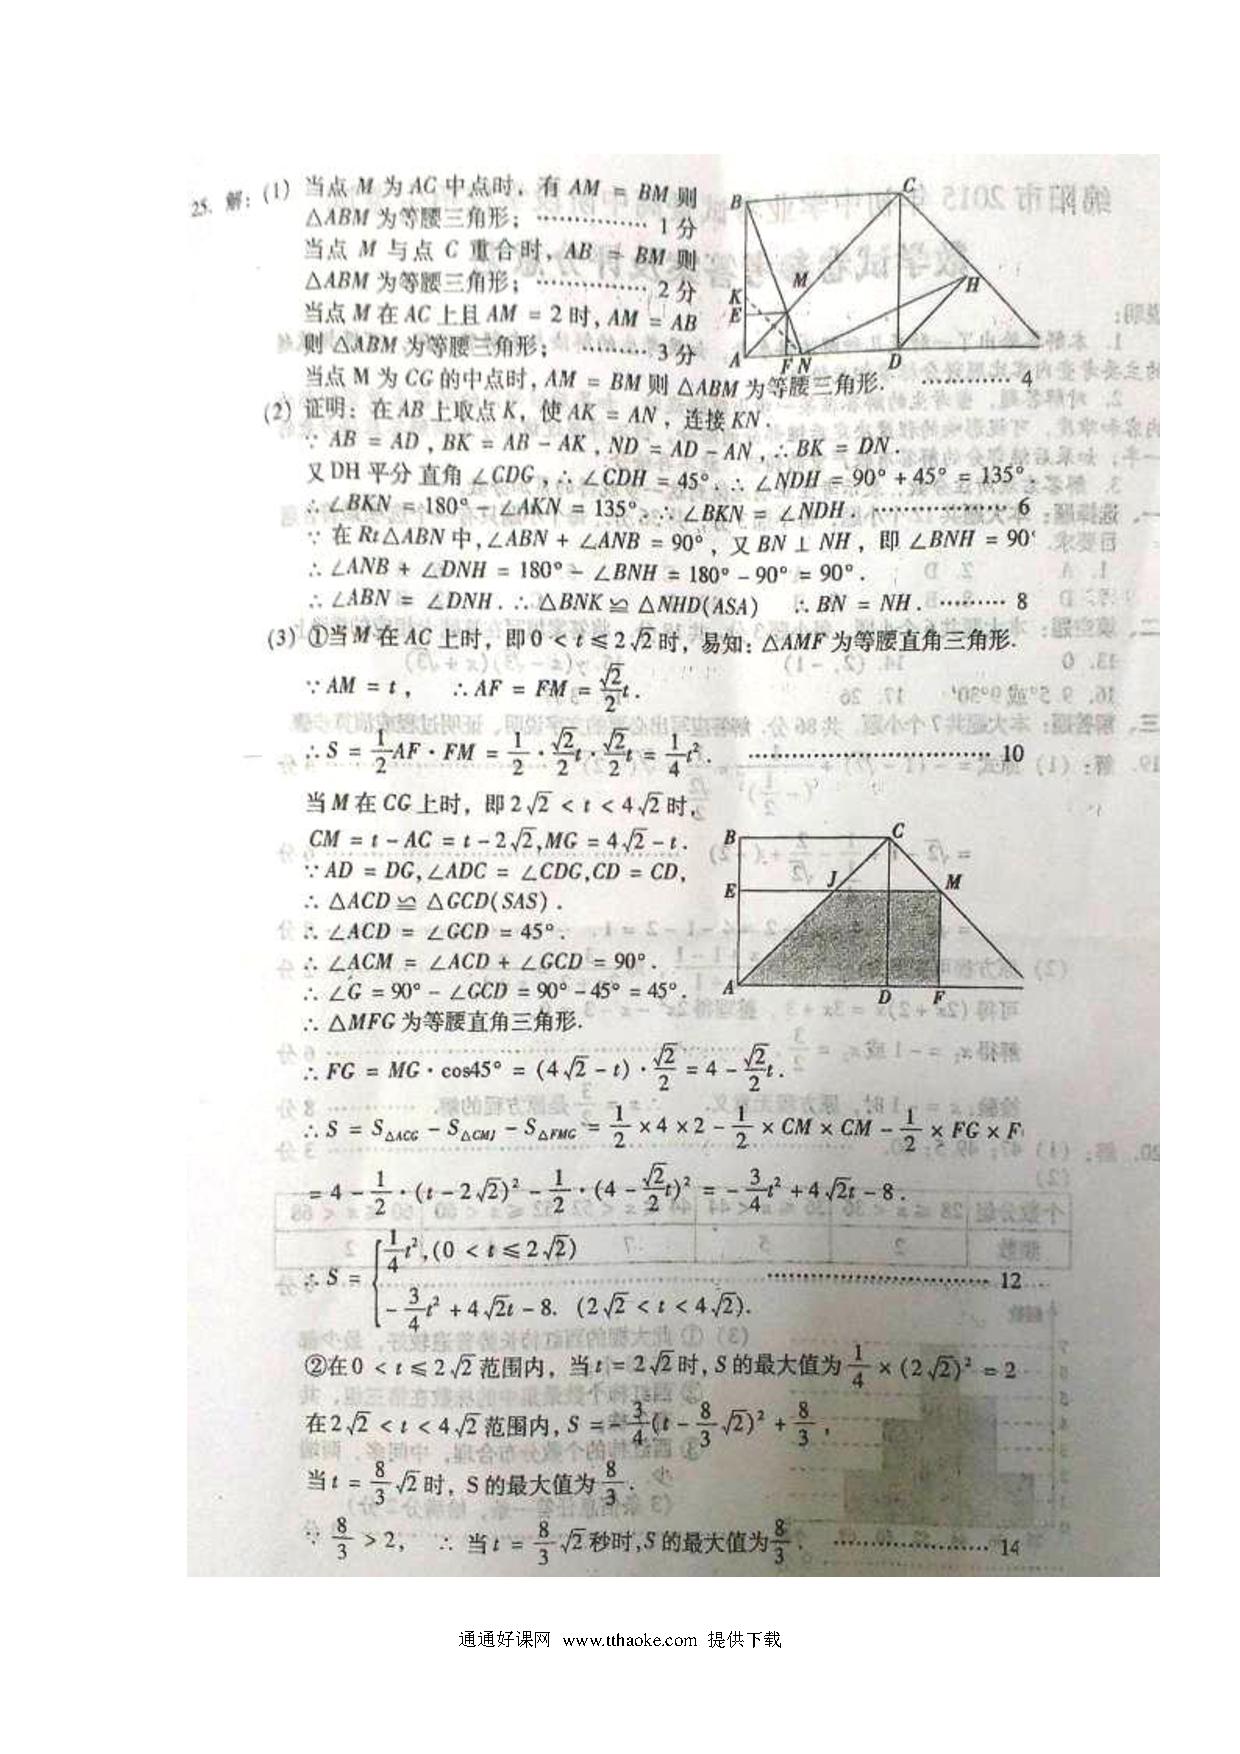 25. 解：(1) 当点 M 为 AC 中点时，有 AM = BM 则
△ABM 为等腰三角形；…………… 1分
当点 M 与点 C 重合时，AB = BM 则
△ABM 为等腰三角形；…………… 2分
当点 M 在 AC 上且 AM = 2 时，AM = AB
则 △ABM 为等腰三角形；……… 3分
当点 M 为 CG 的中点时，AM = BM 则 △ABM 为等腰三角形. ………… 4
B C M H K E A F N D
(2) 证明：在 AB 上取点 K，使 AK = AN，连接 KN.
∵ AB = AD，BK = AB − AK，ND = AD − AN，∴ BK = DN.
又 DH 平分直角 ∠CDG，∴ ∠CDH = 45°. ∴ ∠NDH = 90° + 45° = 135°.
∴ ∠BKN = 180° − ∠AKN = 135°. ∴ ∠BKN = ∠NDH. ……………… 6
∵ 在 Rt△ABN 中，∠ABN + ∠ANB = 90°，又 BN ⊥ NH，即 ∠BNH = 90°
∴ ∠ANB + ∠DNH = 180° − ∠BNH = 180° − 90° = 90°.
∴ ∠ABN = ∠DNH. ∴ △BNK ≌ △NHD(ASA) ∴ BN = NH. ……… 8
(3) ①当 M 在 AC 上时，即 0 < t ⩽ 2√2 时，易知：△AMF 为等腰直角三角形.
∵ AM = t， ∴ AF = FM = √2/2 t.
∴ S = 1/2 AF · FM = 1/2 · √2/2 t · √2/2 t = 1/4 t². ………………………… 10
当 M 在 CG 上时，即 2√2 < t < 4√2 时，
CM = t − AC = t − 2√2, MG = 4√2 − t.
∵ AD = DG, ∠ADC = ∠CDG, CD = CD,
∴ △ACD ≌ △GCD(SAS).
∴ ∠ACD = ∠GCD = 45°.
∴ ∠ACM = ∠ACD + ∠GCD = 90°.
∴ ∠G = 90° − ∠GCD = 90° − 45° = 45°.
∴ △MFG 为等腰直角三角形.
B C E J M A D F
∴ FG = MG · cos45° = (4√2 − t) · √2/2 = 4 − √2/2 t.
∴ S = S△ACG − S△CMJ − S△FMG = 1/2 × 4 × 2 − 1/2 × CM × CM − 1/2 × FG × F
= 4 − 1/2 · (t − 2√2)² − 1/2 · (4 − √2/2 t)² = −3/4 t² + 4√2t − 8.
∴ S = { 1/4 t², (0 < t ⩽ 2√2)
−3/4 t² + 4√2t − 8. (2√2 < t < 4√2). ……………………… 12
②在 0 < t ⩽ 2√2 范围内，当 t = 2√2 时，S 的最大值为 1/4 × (2√2)² = 2
在 2√2 < t < 4√2 范围内，S = −3/4 (t − 8/3 √2)² + 8/3，
当 t = 8/3 √2 时，S 的最大值为 8/3.
∵ 8/3 > 2， ∴ 当 t = 8/3 √2 秒时，S 的最大值为 8/3. ……………… 14
通通好课网 www.tthaoke.com 提供下载